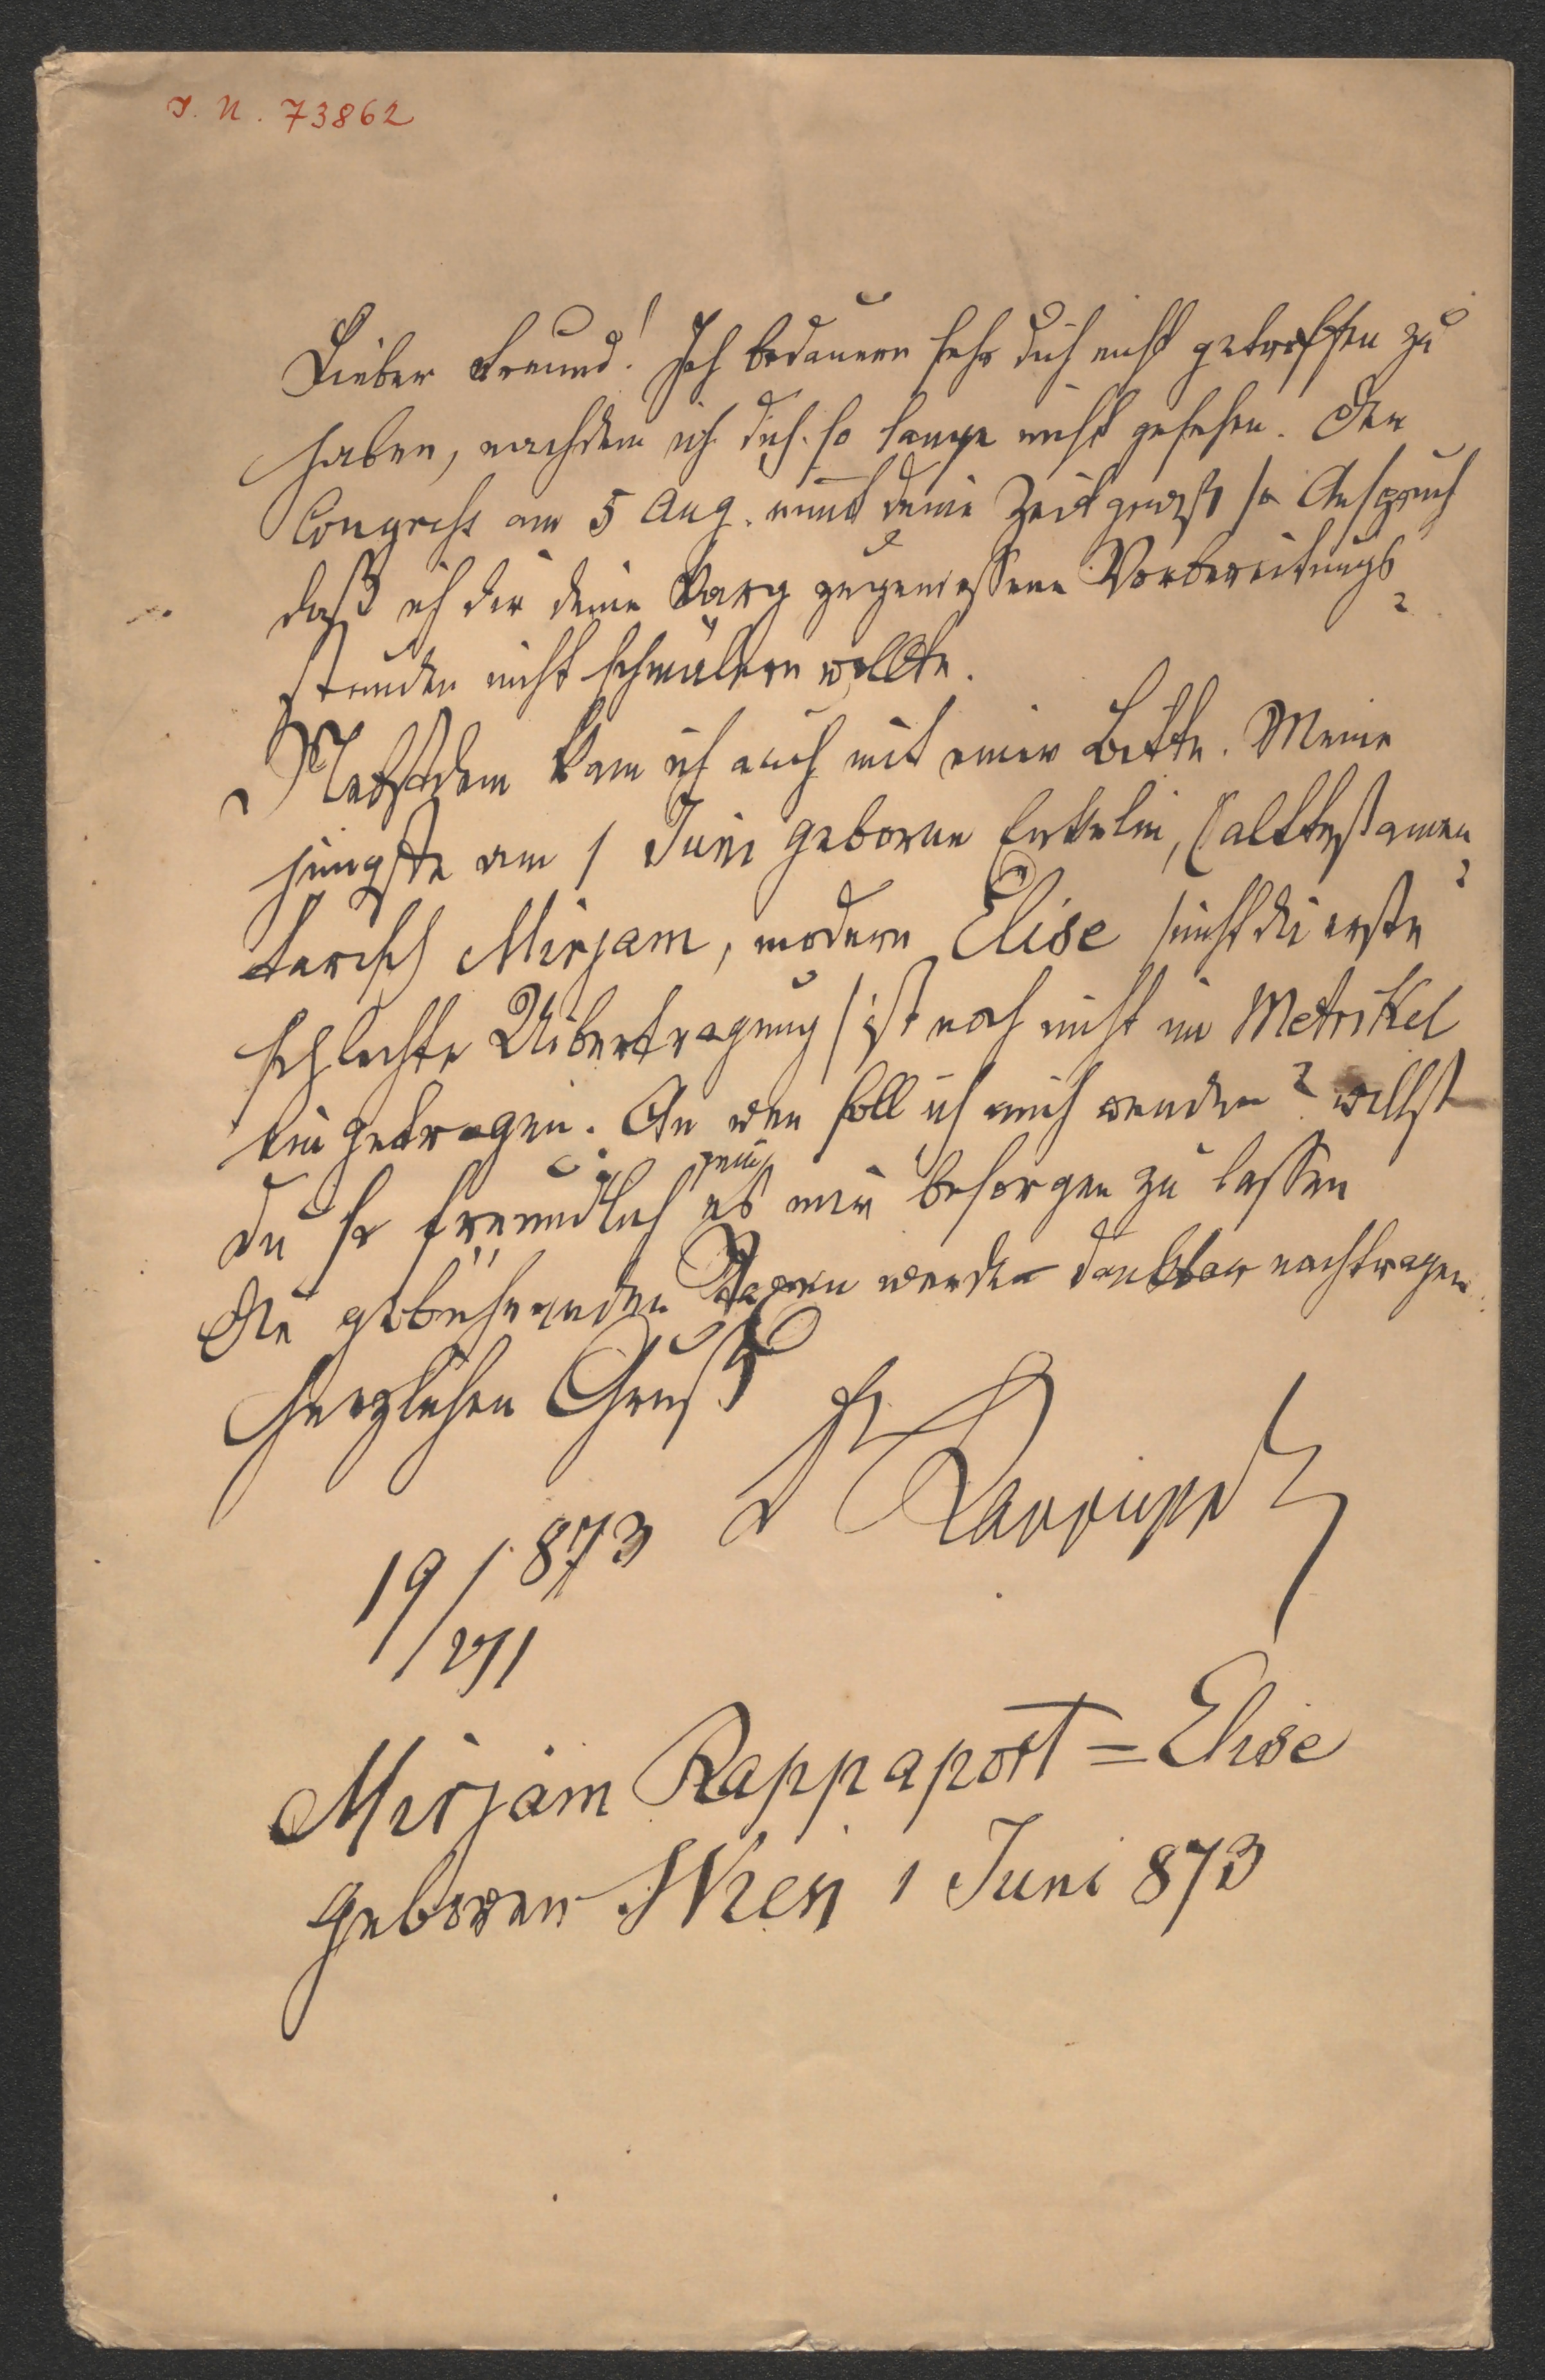 I. N. 73862
Lieber Freund! Ich bedauere sehr dich nicht getroffen zu
haben, nachdem ich dich so lange nicht gesehen. Der
Congreß am 5 Aug. nimt deine Zeit gewiß so Anspruch
daß ich dir deine karg zugemessene Vorbereitungs-
stunden nicht schmälern wollte.
Nebstdem kam ich auch mit einer Bitte. Meine
jüngste am 1 Juni geborne Enkelin, (alttestamen-
tarisch Mirjam, modern Elise (nicht die erste
schlechte Uibertragung) ist noch nicht in Metrikel
eingetragen. An wen soll ich mich wenden? willst
du so freundlich sein es mir besorgen zu lassen
Die gebührenden Taxen werde dankbar nachtragen.
Herzlichen Gruß
19/VII 873
Mirjam Rappaport = Elise
geboren Wien 1 Juni 873